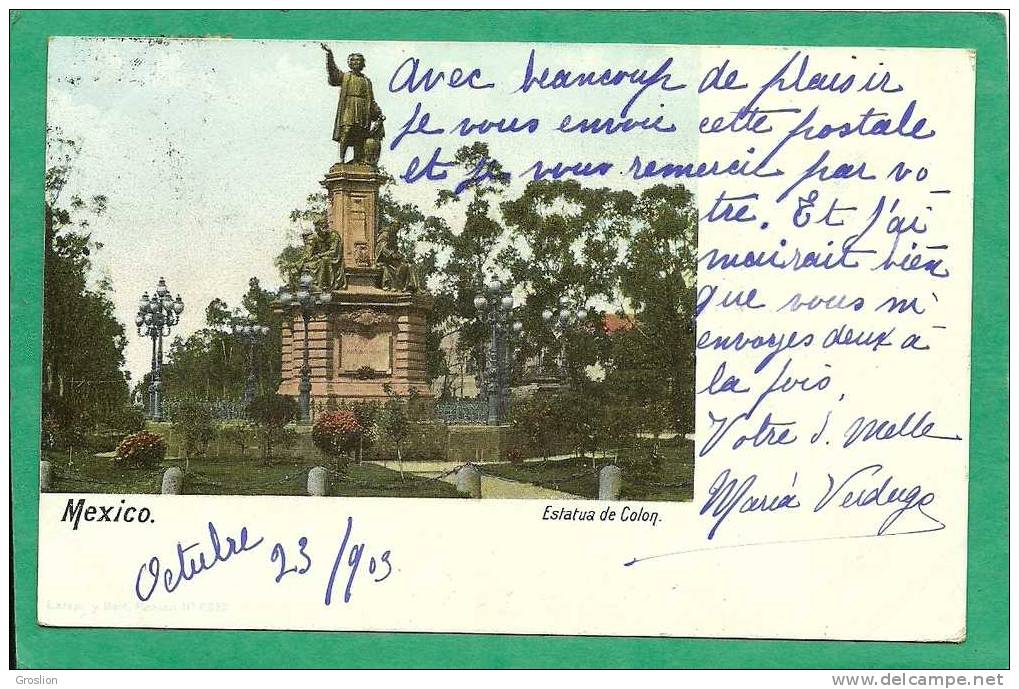 Avec beaucoup de plaisir
je vous envoie cette postale
et je vous remerci par vo-
tre. Et j'ai
mairait bien
que vous m'
envoyes deux à
la fois.
Votre S. Melle
Mariá Verdugo
Mexico.
Estatua de Colon.
Octubre 23/903
Groslion
www.delcampe.net